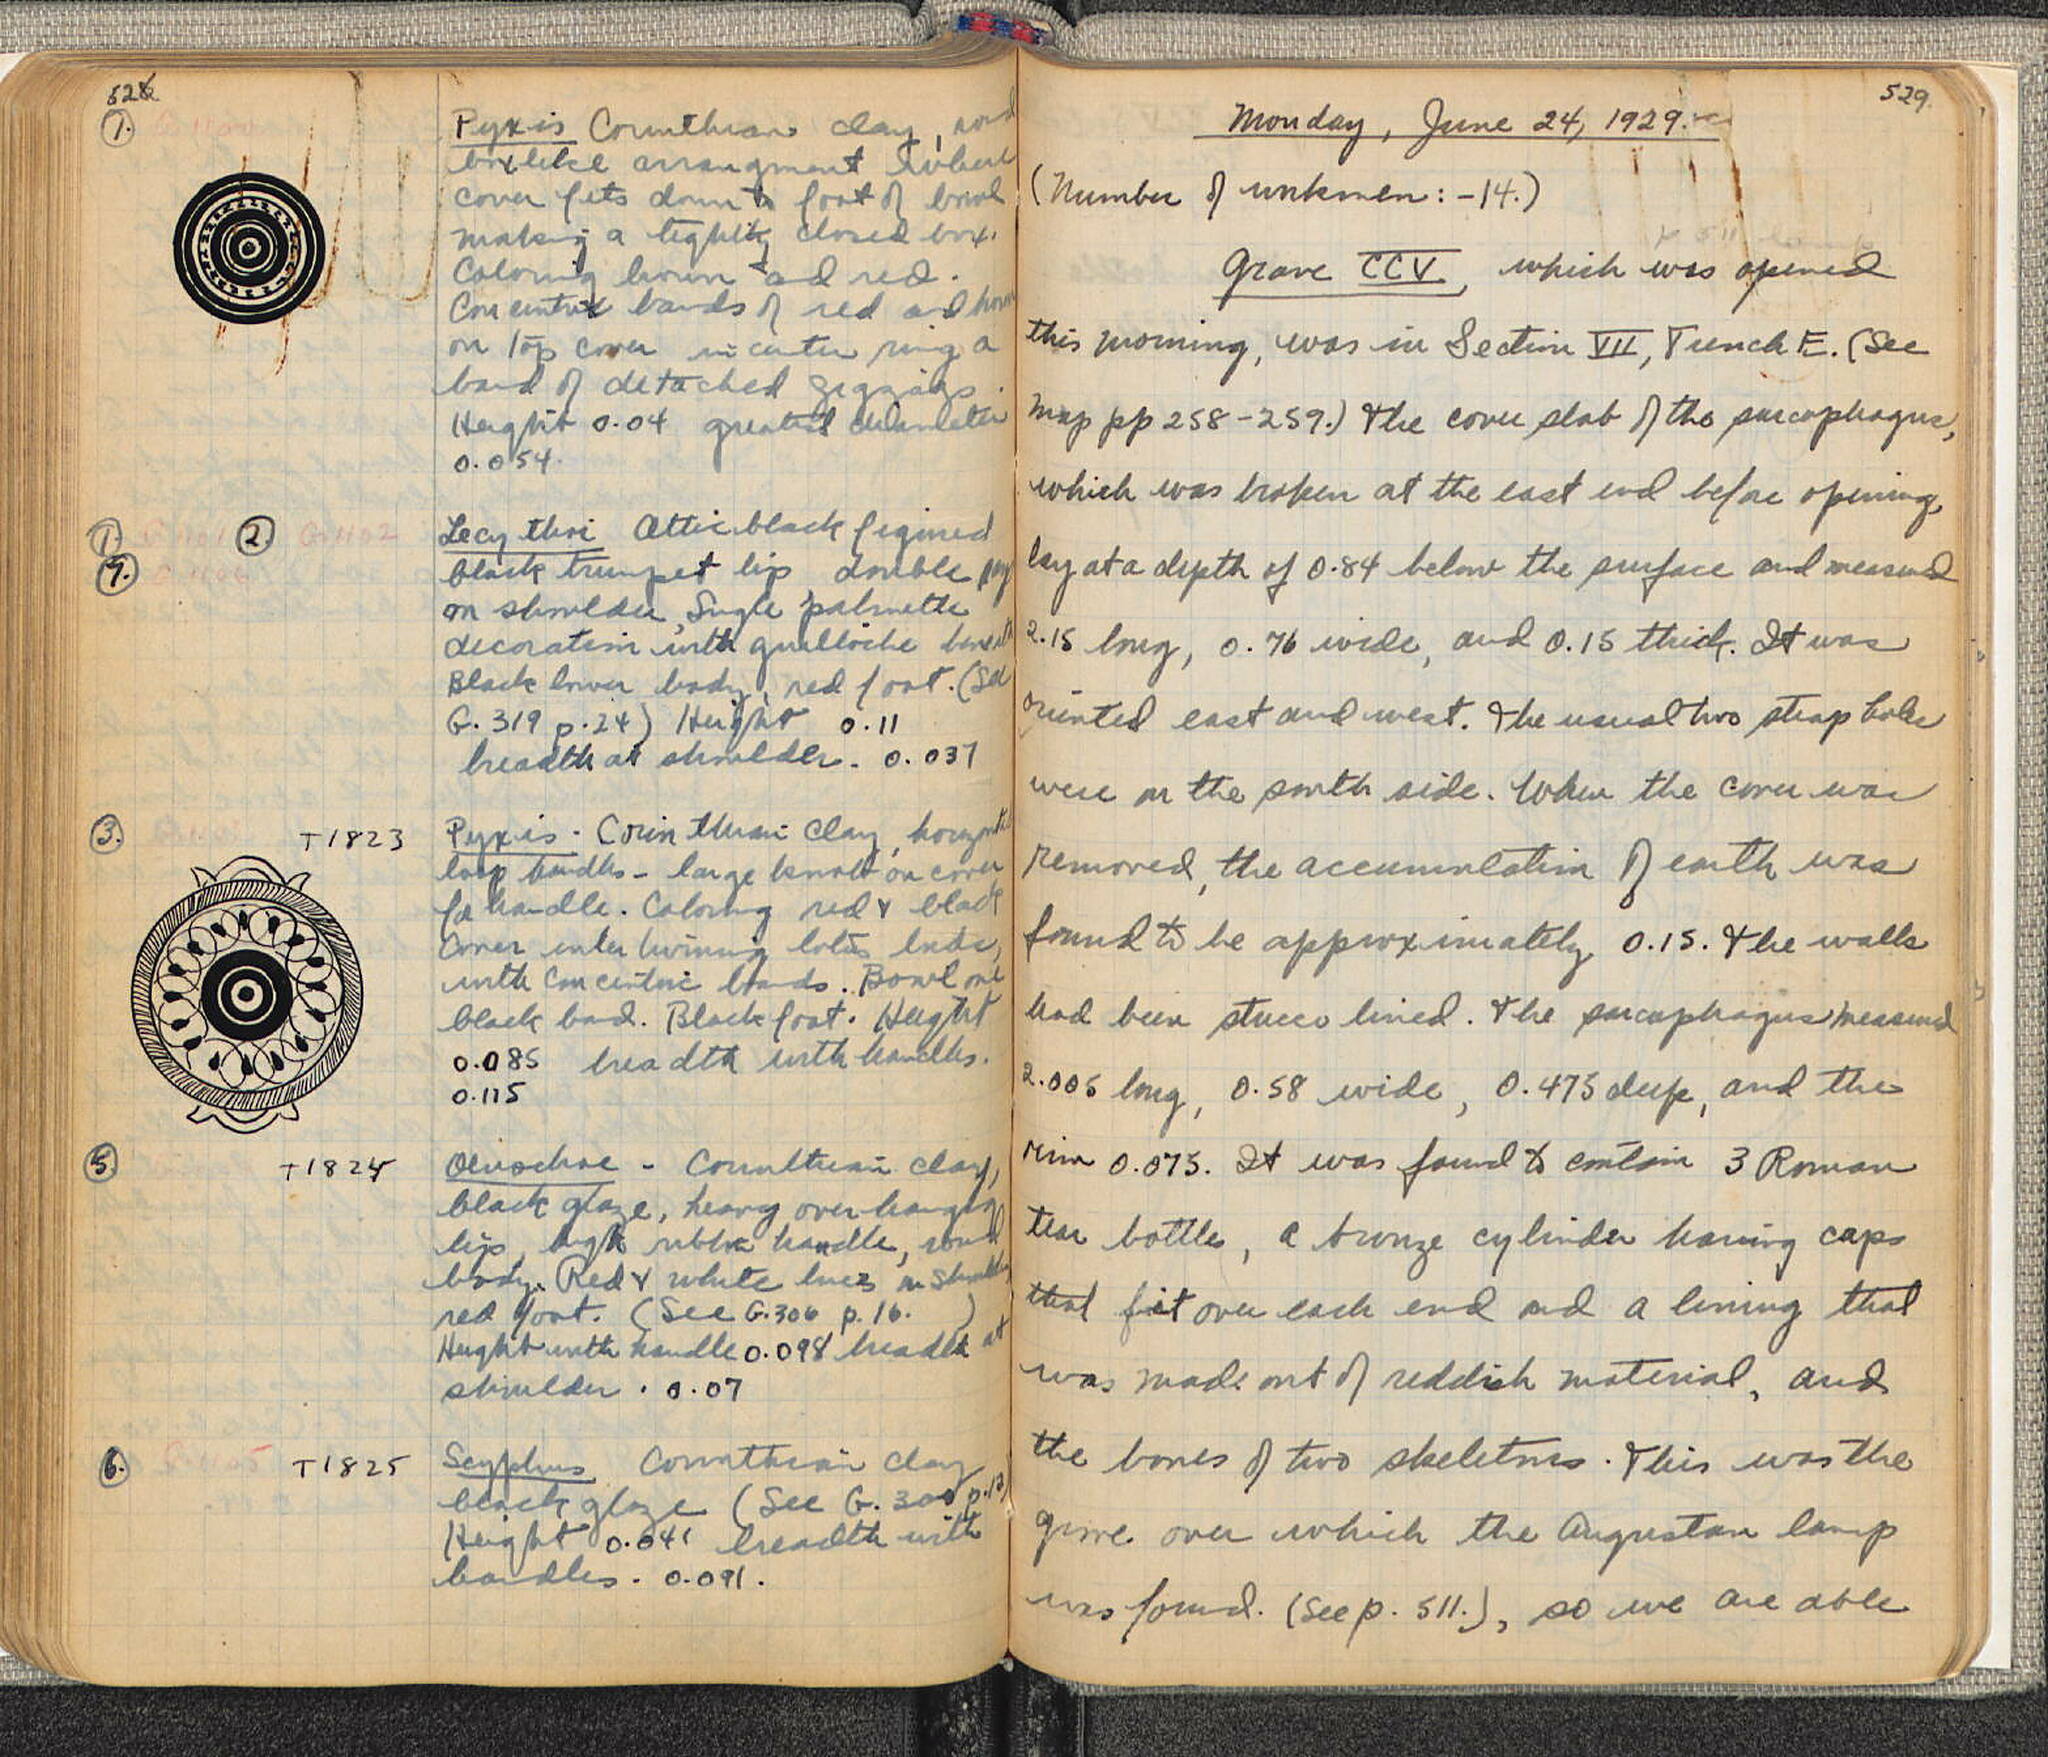 528
7.
Pyxis Corinthian clay, round
boxlike arrangment where
cover fits down to foot of bowl
making a tightly closed box.
Coloring brown and red.
Concentric bands of red and brown
on top cover in center ring a
band of detached zigzags.
Height 0.04 greatest diameter
0.054.
1. G 1101 2. G. 1102
4.
Lecythoi Attic black figured
black trumpet lip double
on shoulder, Single palmette
decoration with guilloche beneath
Black lower body, red foot. (See
G. 319 p. 24) Height 0.11
breadth at shoulder. 0.037
3. T1823
Pyxis - Corinthian clay, horizontal
loop handles - large knob on cover
for handle. Coloring red & black
Cover intertwining lotus buds,
with concentric bands. Bowl one
black band. Black foot. Height
0.085 breadth with handles.
0.115
5. T1824
Oenochoe - Corinthian clay,
black glaze, heavy overhanging
lip, high ribbn handle, round
body. Red & white lines on shoulder
red foot. (See G. 306 p. 16. )
Height with handle 0.098 breadth at
shoulder. 0.07
6. T1825
Scyphus Corinthian clay
black glaze (See G. 300 p. 13)
Height 0.041 breadth with
handles. 0.091.
529.
Monday, June 24, 1929.
(Number of workmen: -14.)
Grave CCV, which was opened
this morning, was in Section VII, Trench E. (See
map pp 258-259.) The cover slab of the sarcophagus,
which was broken at the east end before opening,
lay at a depth of 0.84 below the surface and measured
2.15 long, 0.76 wide, and 0.15 thick. It was
oriented east and west. The usual two strap holes
were on the south side. When the cover was
removed, the accumulation of earth was
found to be approximately 0.15. The walls
had been stucco lined. The sarcophagus measured
2.005 long, 0.58 wide, 0.475 deep, and the
rim 0.075. It was found to contain 3 Roman
tear bottles, a bronze cylinder having caps
that fit over each end and a lining that
was made out of reddish material, and
the bones of two skeletons. This was the
grave over which the Augustan lamp
was found. (See p. 511.), so we are able